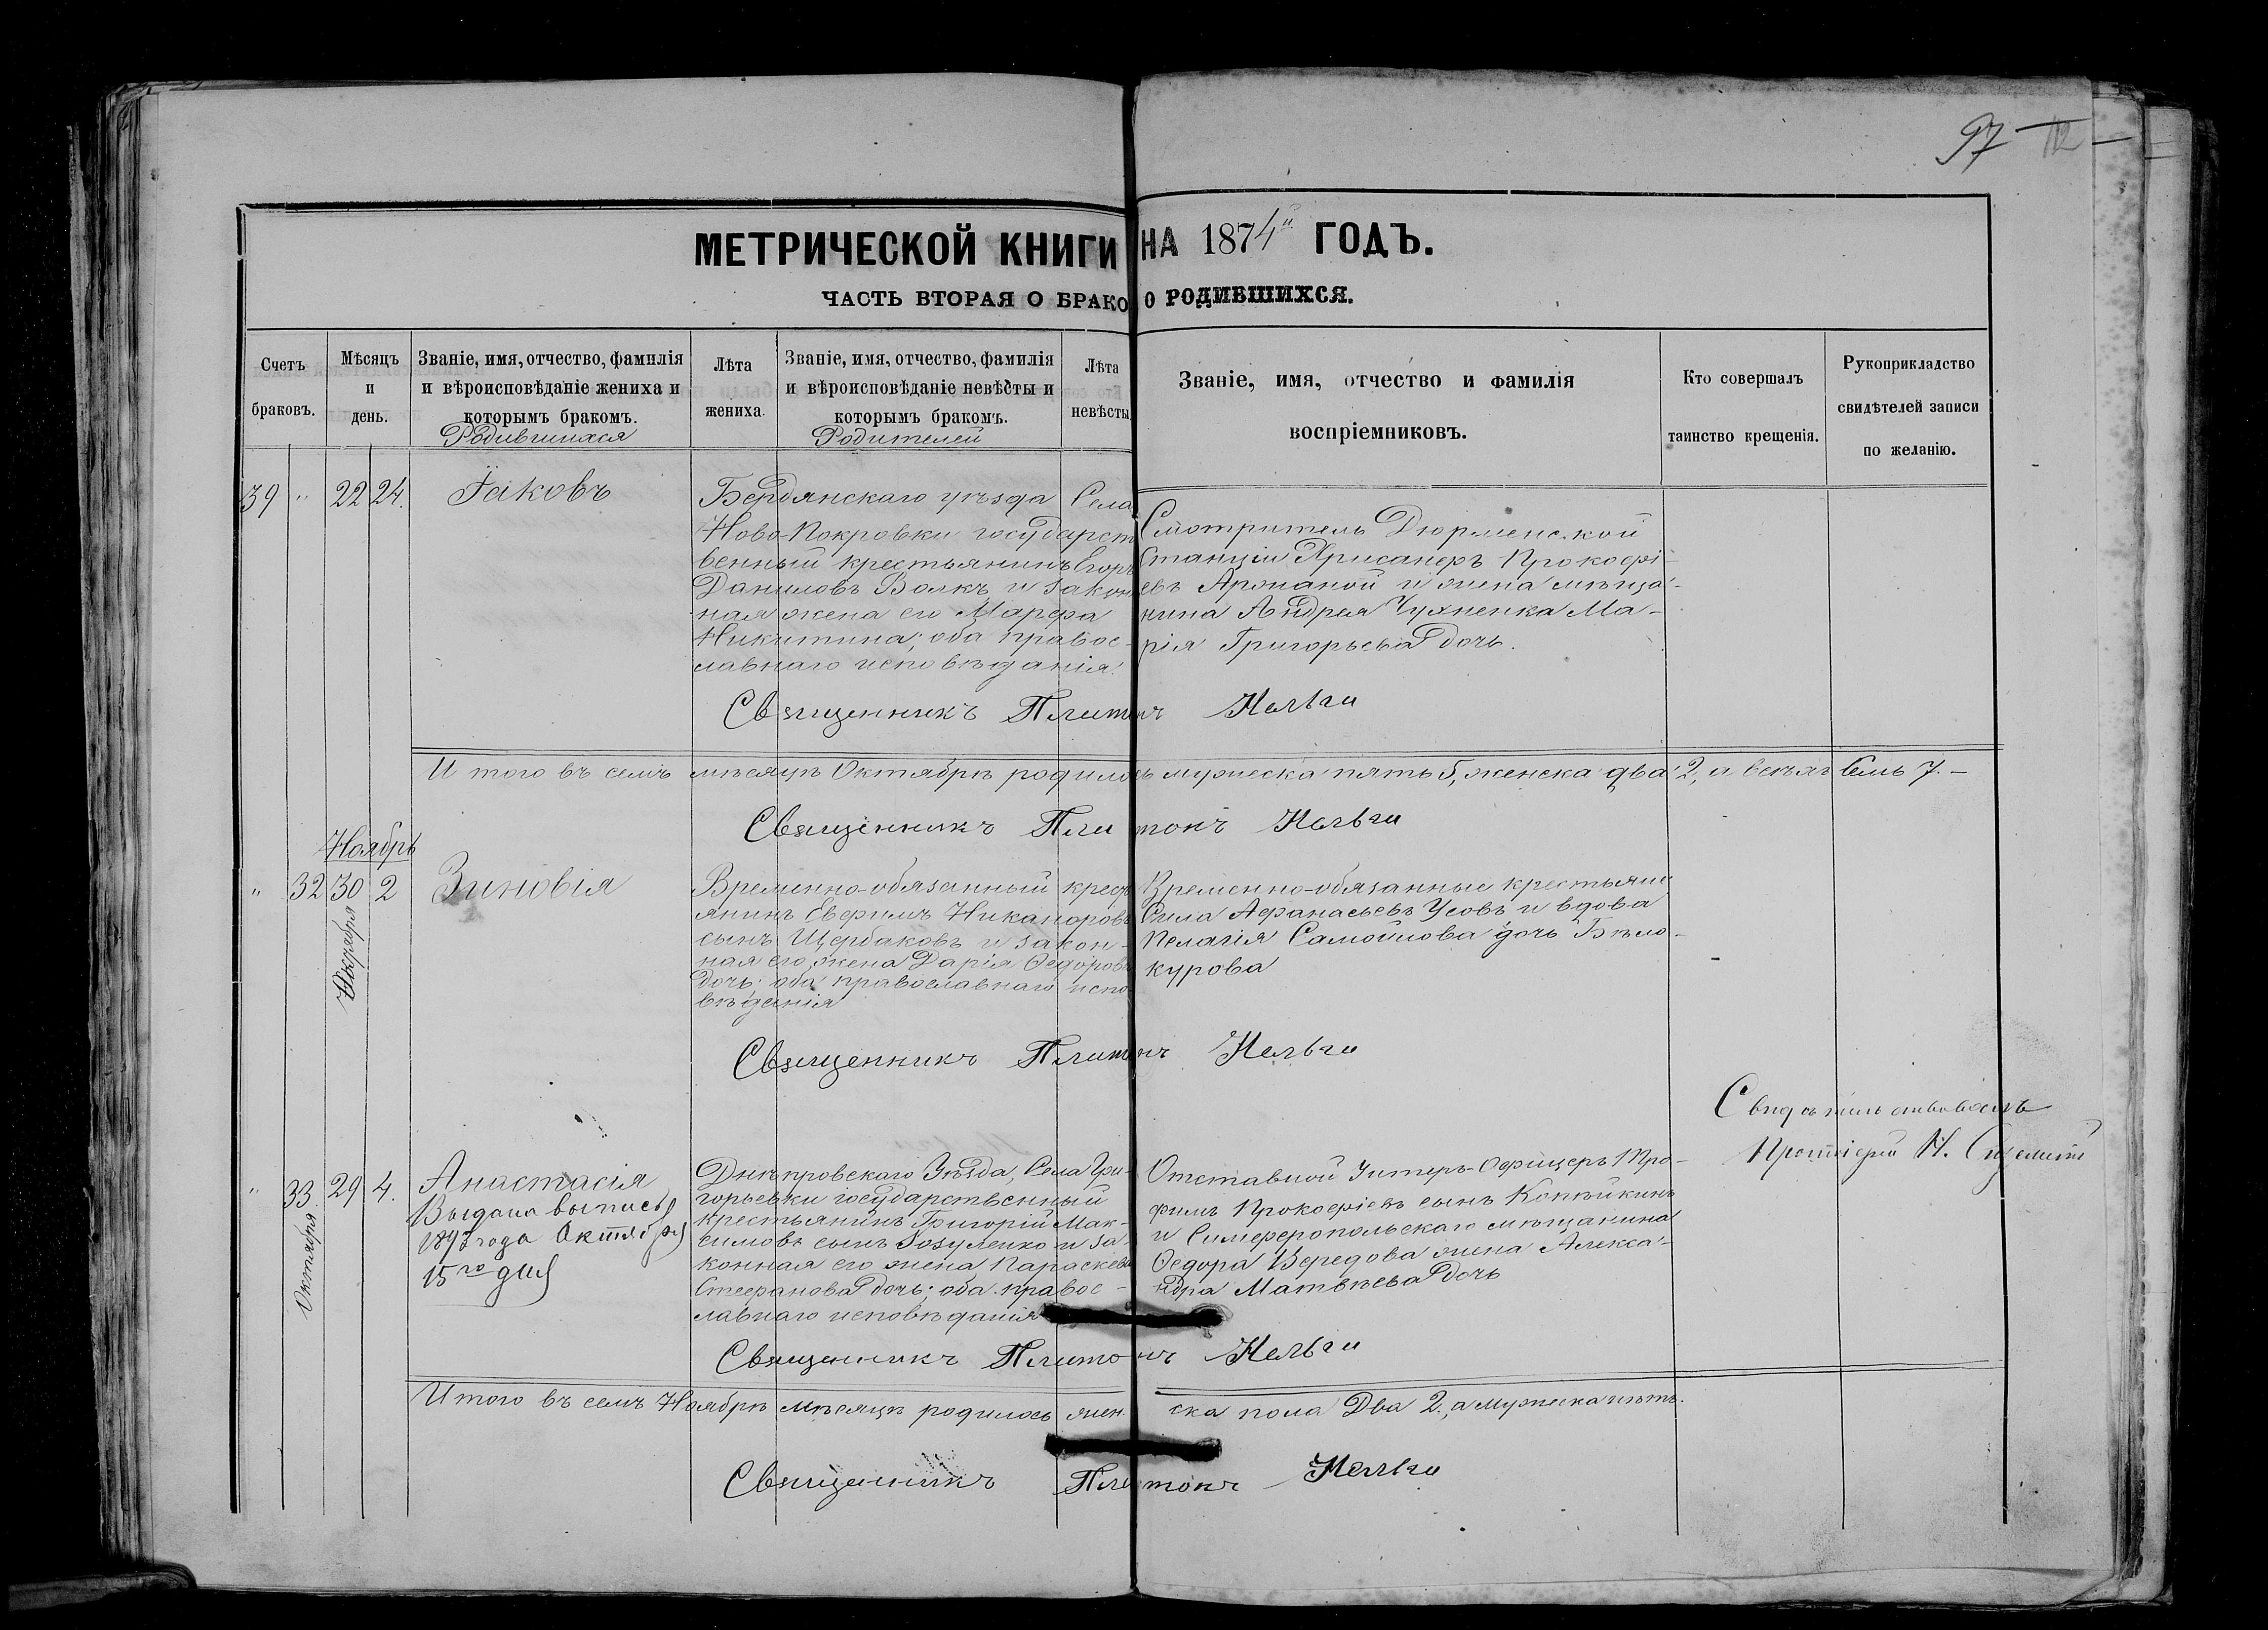 97
12
МЕТРИЧЕСКОЙ КНИГИ НА 1874й ГОДЪ.
ЧАСТЬ ВТОРАЯ О БРАКО О РОДИВШИХСЯ.
Счетъ браковъ.
Мѣсяцъ и день.
Званіе, имя, отчество, фамилія и вѣроисповѣданіе жениха и которымъ бракомъ.
Родившихся
Лѣта жениха.
Званіе, имя, отчество, фамилія и вѣроисповѣданіе невѣсты и которымъ бракомъ.
Родителей
Лѣта невѣсты
Званіе, имя, отчество и фамилія воспріемниковъ.
Кто совершалъ таинство крещенія.
Рукоприкладство свидѣтелей записи по желанію.
39 " 22 24. Іаковъ
Бердянскаго уѣзда Села
Ново-Покровки государст
венный крестьянинъ Егоръ
Даниловъ Волкъ и закон
ная жена его Марфа
Никитина; оба правос-
лавнаго исповѣданія.
Смотритель Дюрменской
Станціи Хрисанфъ Прокофі-
евъ Арманой и жена мѣща-
нина Андрея Чухненка Ма-
рія Григорьева дочь.
Священникъ Платонъ
Итого въ семъ мѣсяцѣ Октябрѣ родилось мужеска пять 5, женска два 2, а всѣхъ семь 7.-
Священникъ Платонъ
Ноябрь
" 32 30 2 Зиновія
Октября
Временно-обязанный крест
янинъ Ефимъ Никаноровъ
сынъ Щербаковъ и закон-
ная его жена Дарія Ѳедорова
дочь; оба православнаго испо
вѣданія
Временно-обязанные крестьяне
Сила Афанасьевъ Усовъ и вдова
Пелагія Самойлова дочь Бѣло-
курова
Священникъ Платонъ
Свидѣтельствовалъ
Протоіерей Н.
" 33 29 4. Анастасія
Октября
Выдана выпись
года Октября
15го дня
Днѣпровскаго Уѣзда, Села Гри-
горьевки государственный
крестьянинъ Григорій Мак-
симовъ сынъ Гозуленко и за-
конная его жена Параскева
Стефанова дочь; оба правос-
лавнаго исповѣданія
Отставной Унтеръ-Офицеръ Тро-
фимъ Прокофіевъ сынъ Копѣйкинъ
и Симферопольскаго мѣщанина
Ѳедора Вередова жена Алекса-
ндра Матвѣева дочь
Священникъ Платонъ
Итого въ семъ Ноябрѣ мѣсяцѣ родилось жен ска пола Два 2, а мужеска нѣтъ.
Священникъ Платонъ